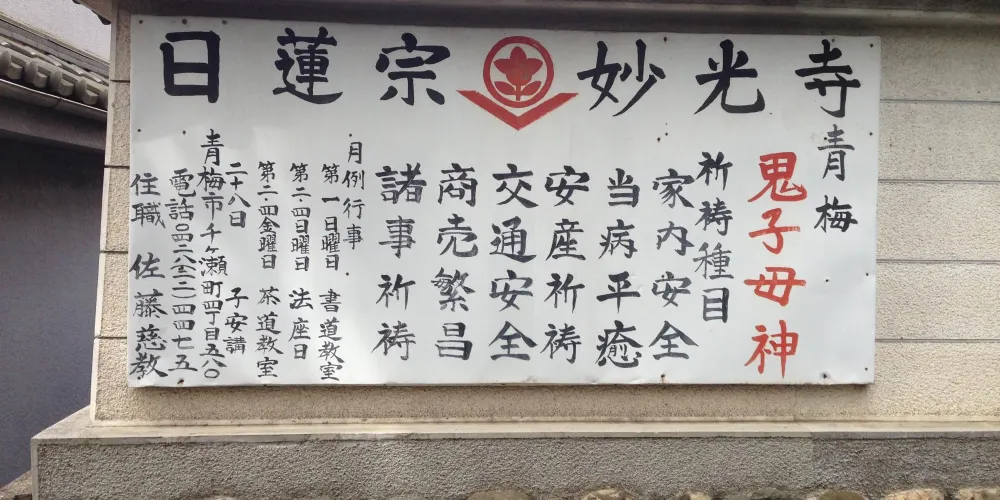 日蓮宗 妙光寺
青梅
鬼子母神
祈祷種目
家内安全
当病平癒
安産祈祷
交通安全
商売繁昌
諸事祈祷
月例行事
第一日曜日 書道教室
第二・四日曜日 法座日
第二・四金曜日 茶道教室
二十八日 子安講
青梅市千ヶ瀬町四丁目五八〇
電話〇四二八(二二)四四七五
住職 佐藤慈教